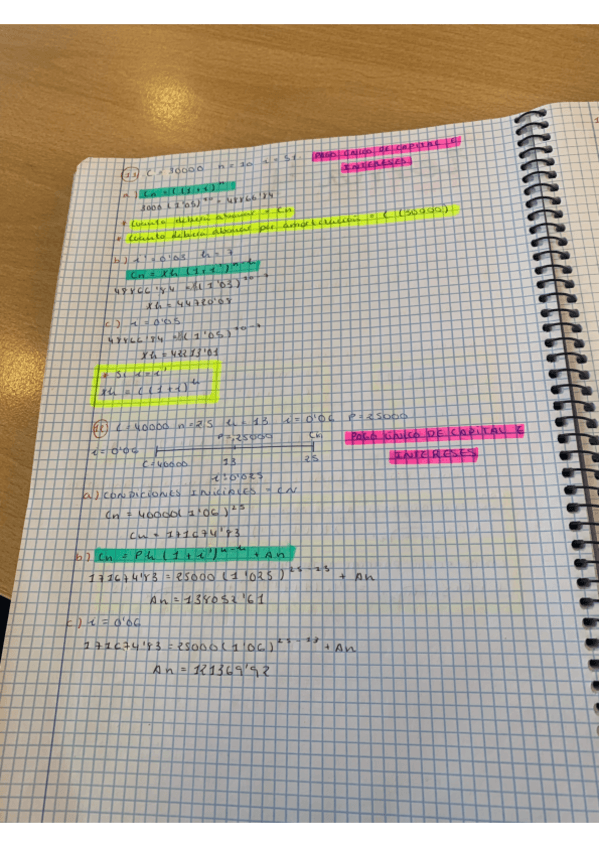 11) C = 30000 n = 10 i = 5%. PAGO ÚNICO DE CAPITAL E
INTERESES
a) Cn = C(1+i)^n
3000 (1'05)^10 = 48866'84
* Cuanto deberá abonar = Cn
* Cuanto deberá abonar por amortización = C (30000)
b) i' = 0'03 h = 7
Cn = Xh (1+i')^n-h
48866'84 = Xh (1'03)^10-7
Xh = 44720'08
c) i = 0'05
48866'84 = Xh (1'05)^10-7
Xh = 42213'01
* Si i = i'
Xh = C (1+i)^h
12) C = 40000 n = 25 h = 13 i = 0'06 P = 25000
P = 25000 Cn PAGO ÚNICO DE CAPITAL E
i = 0'06
C = 40000 13 25 INTERESES
i = 0'025
a) CONDICIONES INICIALES = CN
Cn = 40000 (1'06)^25
Cn = 171674'83
b) Cn = Ph (1+i')^n-h + An
171674'83 = 25000 (1'025)^25-13 + An
An = 138052'61
c) i = 0'06
171674'83 = 25000 (1'06)^25-13 + An
An = 121369'92